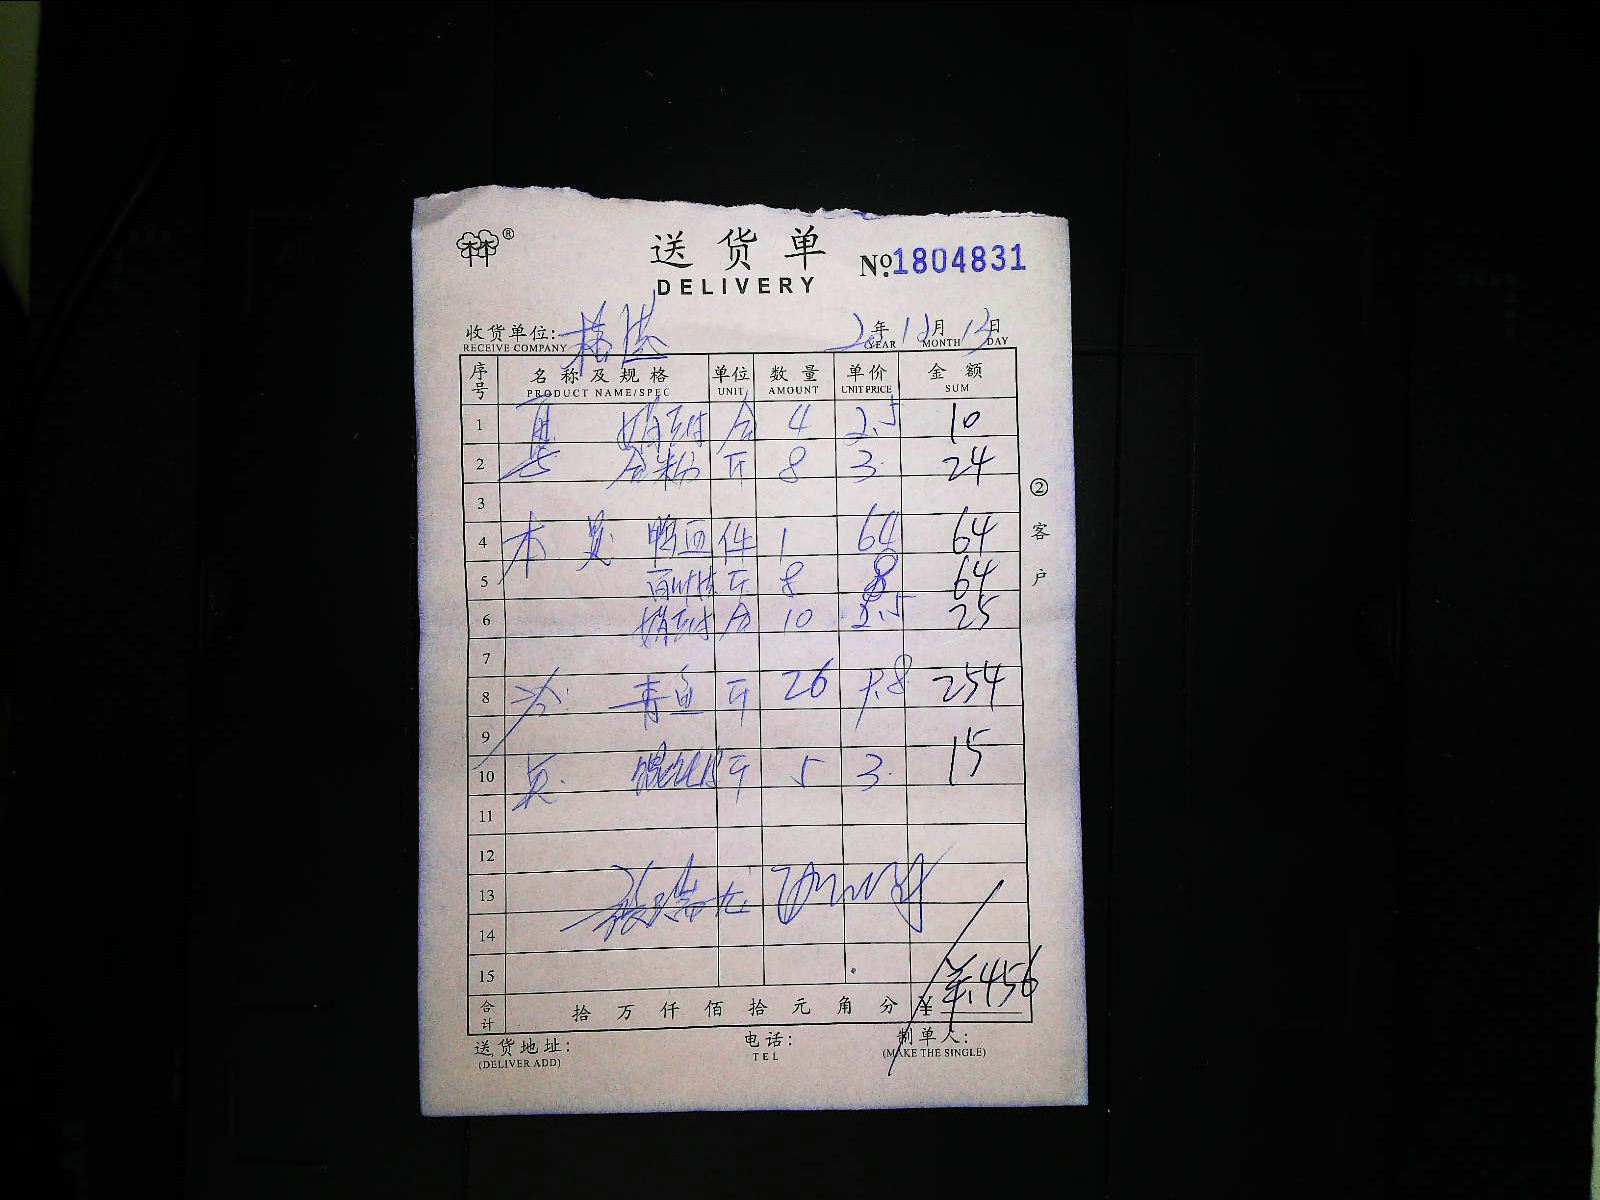 ®
送货单
DELIVERY
№ 1804831
收货单位:
RECEIVE COMPANY
年 12月 13日
YEAR MONTH DAY
序号 名称及规格 单位 数量 单价 金额
PRODUCT NAME/SPEC UNIT AMOUNT UNIT PRICE SUM
1 合 4 2.5 10
2 斤 8 3 24
3
4 鸭血 件 1 64 64
5 斤 8 8 64
6 合 10 2.5 25
7
8 青鱼 斤 26 9.8 254
9
10 斤 5 3 15
11
12
13
14
15
合计 拾 万 仟 佰 拾 元 角 分 ¥ 456
② 客户
送货地址: 电话: 制单人:
(DELIVER ADD) TEL (MAKE THE SINGLE)